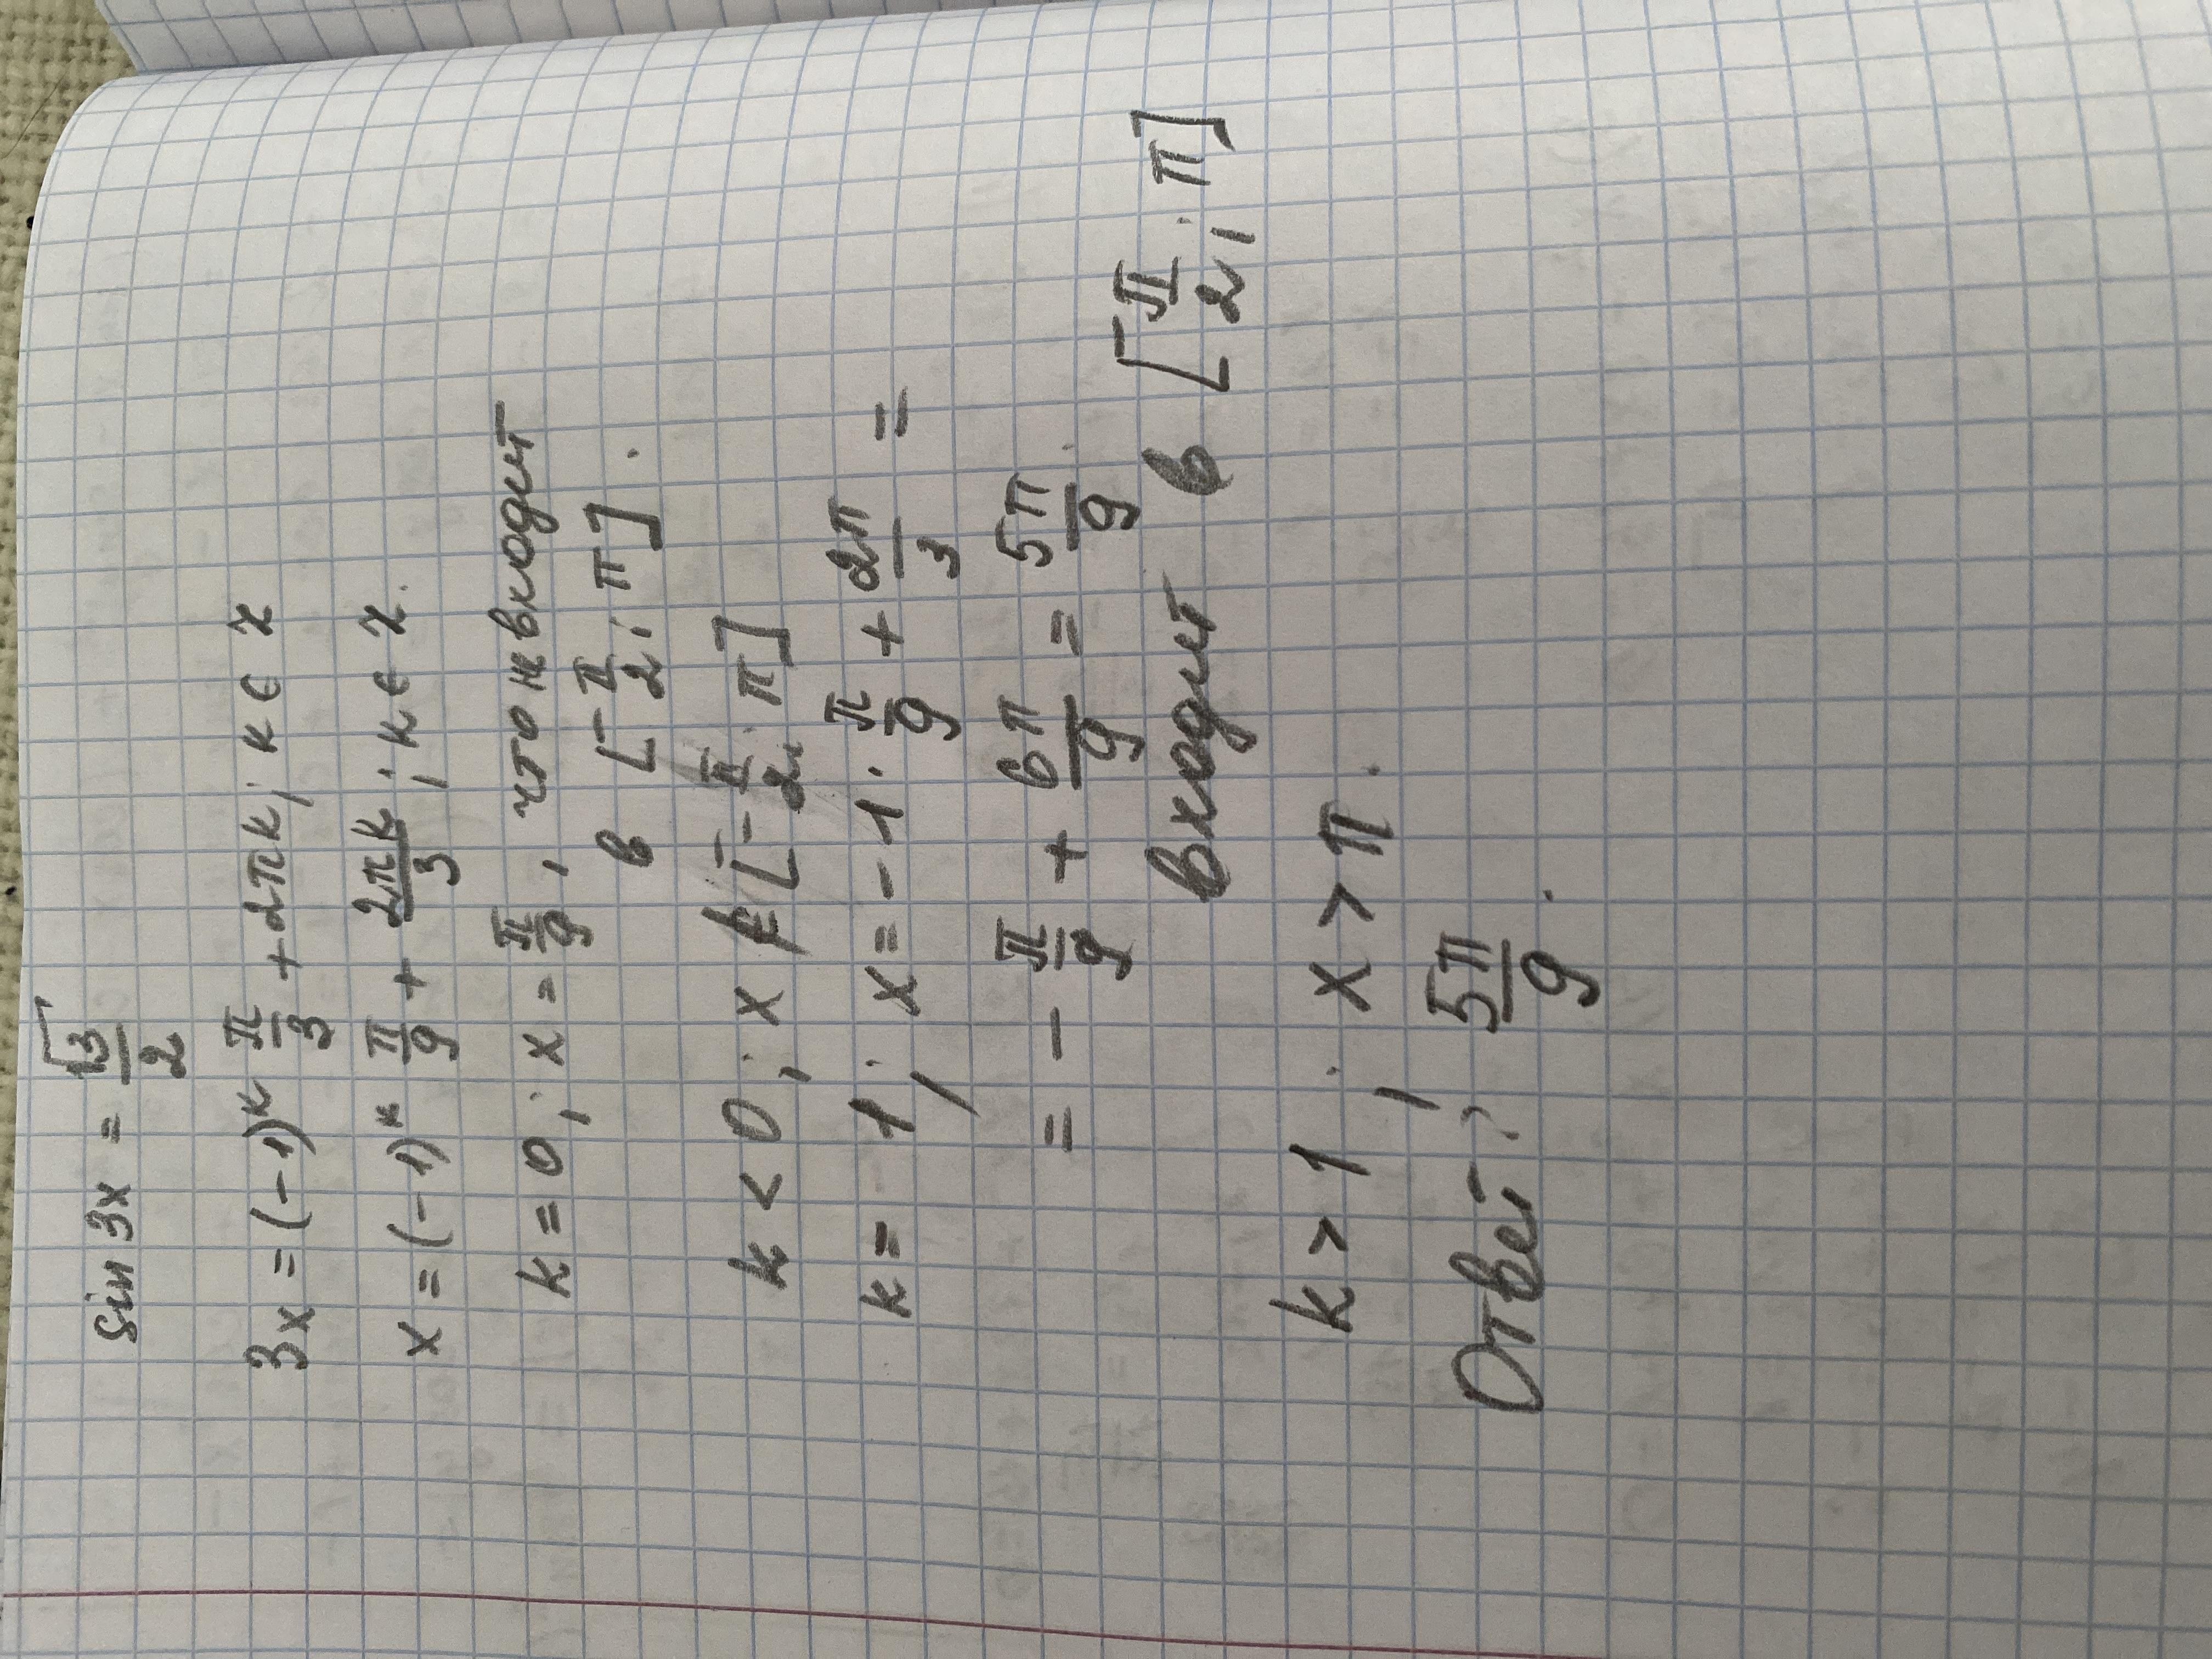 sin 3x = √3/2
3x = (-1)^k π/3 + 2πk; k ∈ z
x = (-1)^k π/9 + 2πk/3; k ∈ z.
k = 0; x = π/9, что не входит
в [-π/2; π].
k < 0; x ∉ [-π/2; π]
k = 1; x = -1 · π/9 + 2π/3 =
= - π/9 + 6π/9 = 5π/9
входит в [-π/2; π]
k > 1; x > π.
Ответ: 5π/9.